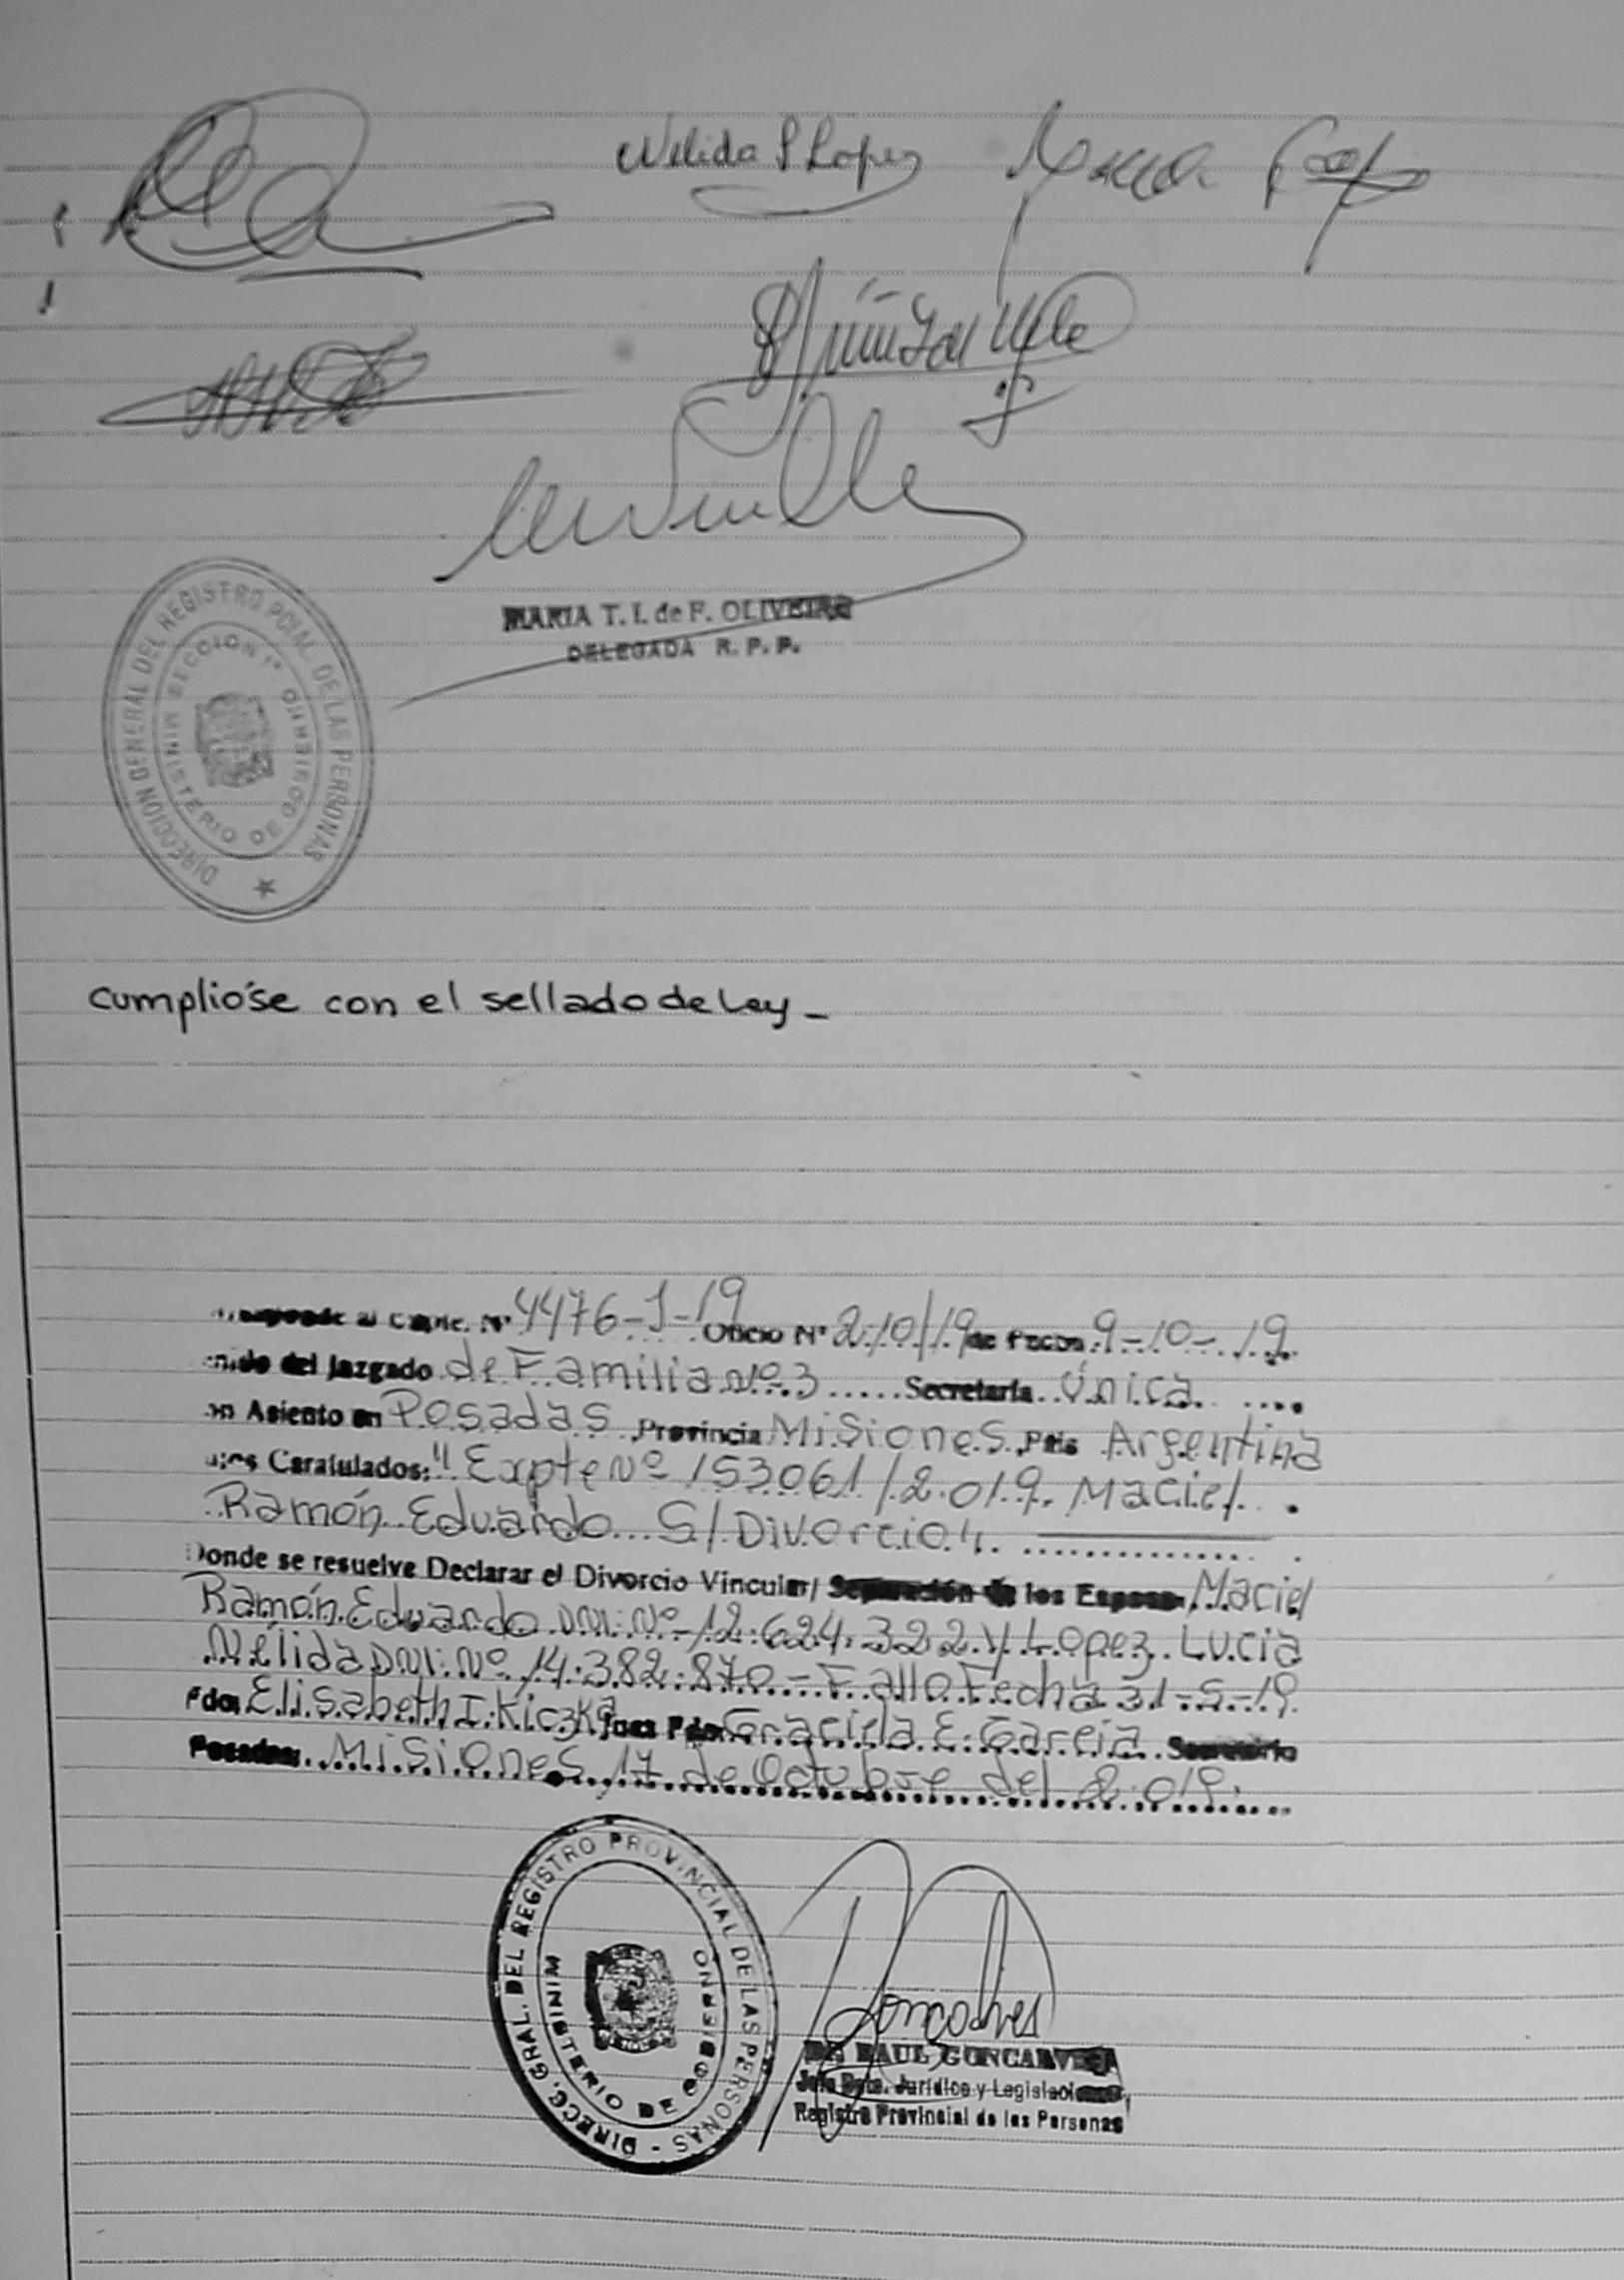 Nelida S Lopez
MARIA T. I. de F. OLIVEIRA
DELEGADA R. P. P.
DIRECCION GENERAL DEL REGISTRO PCIAL. DE LAS PERSONAS
SECCION 1ª
MINISTERIO DE GOBIERNO
cumplióse con el sellado de Ley_
al Expte. Nº 4476-J-19 Oficio Nº 210/19 de Fecha 9-10-19
del Juzgado de Familia Nº 3 Secretaría Única
on Asiento en Posadas Provincia Misiones País Argentina
Caratulados: "Expte Nº 153061/2.019. Maciel
Ramón Eduardo S/Divorcio".
Donde se resuelve Declarar el Divorcio Vincular/ Separación de los Esposos Maciel
Ramón Eduardo DNI: Nº-12.624.322 y Lopez Lucia
Nélida DNI: Nº 14.382.870 - Fallo Fecha 31-5-19
Fdo, Elisabeth I. Kiczka Juez Fdo: Graciela E. Garcia Secretario
Posadas: Misiones 17 de Octubre del 2.019.
DIRECC. GRAL. DEL REGISTRO PROVINCIAL DE LAS PERSONAS -
MINISTERIO DE GOBIERNO
Gonçalves
DR. RAUL GONCALVES
Jefe Dpto. Jurídico y Legislaciones
Registro Provincial de las Personas